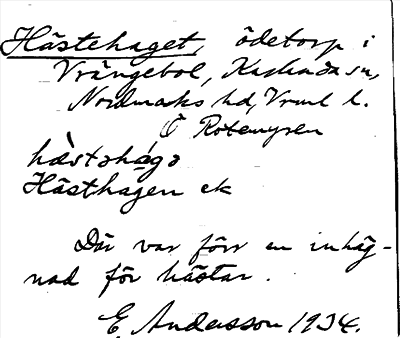 Hästehaget, ödetorp i
Vrängebol, Karlanda sn,
Nordmarks hd, Vrml l.
Ö Rötemyren
hæ̀stəhágə
Hästhagen ek
Där var förr en inhäg-
nad för hästar.
E. Andersson 1934.